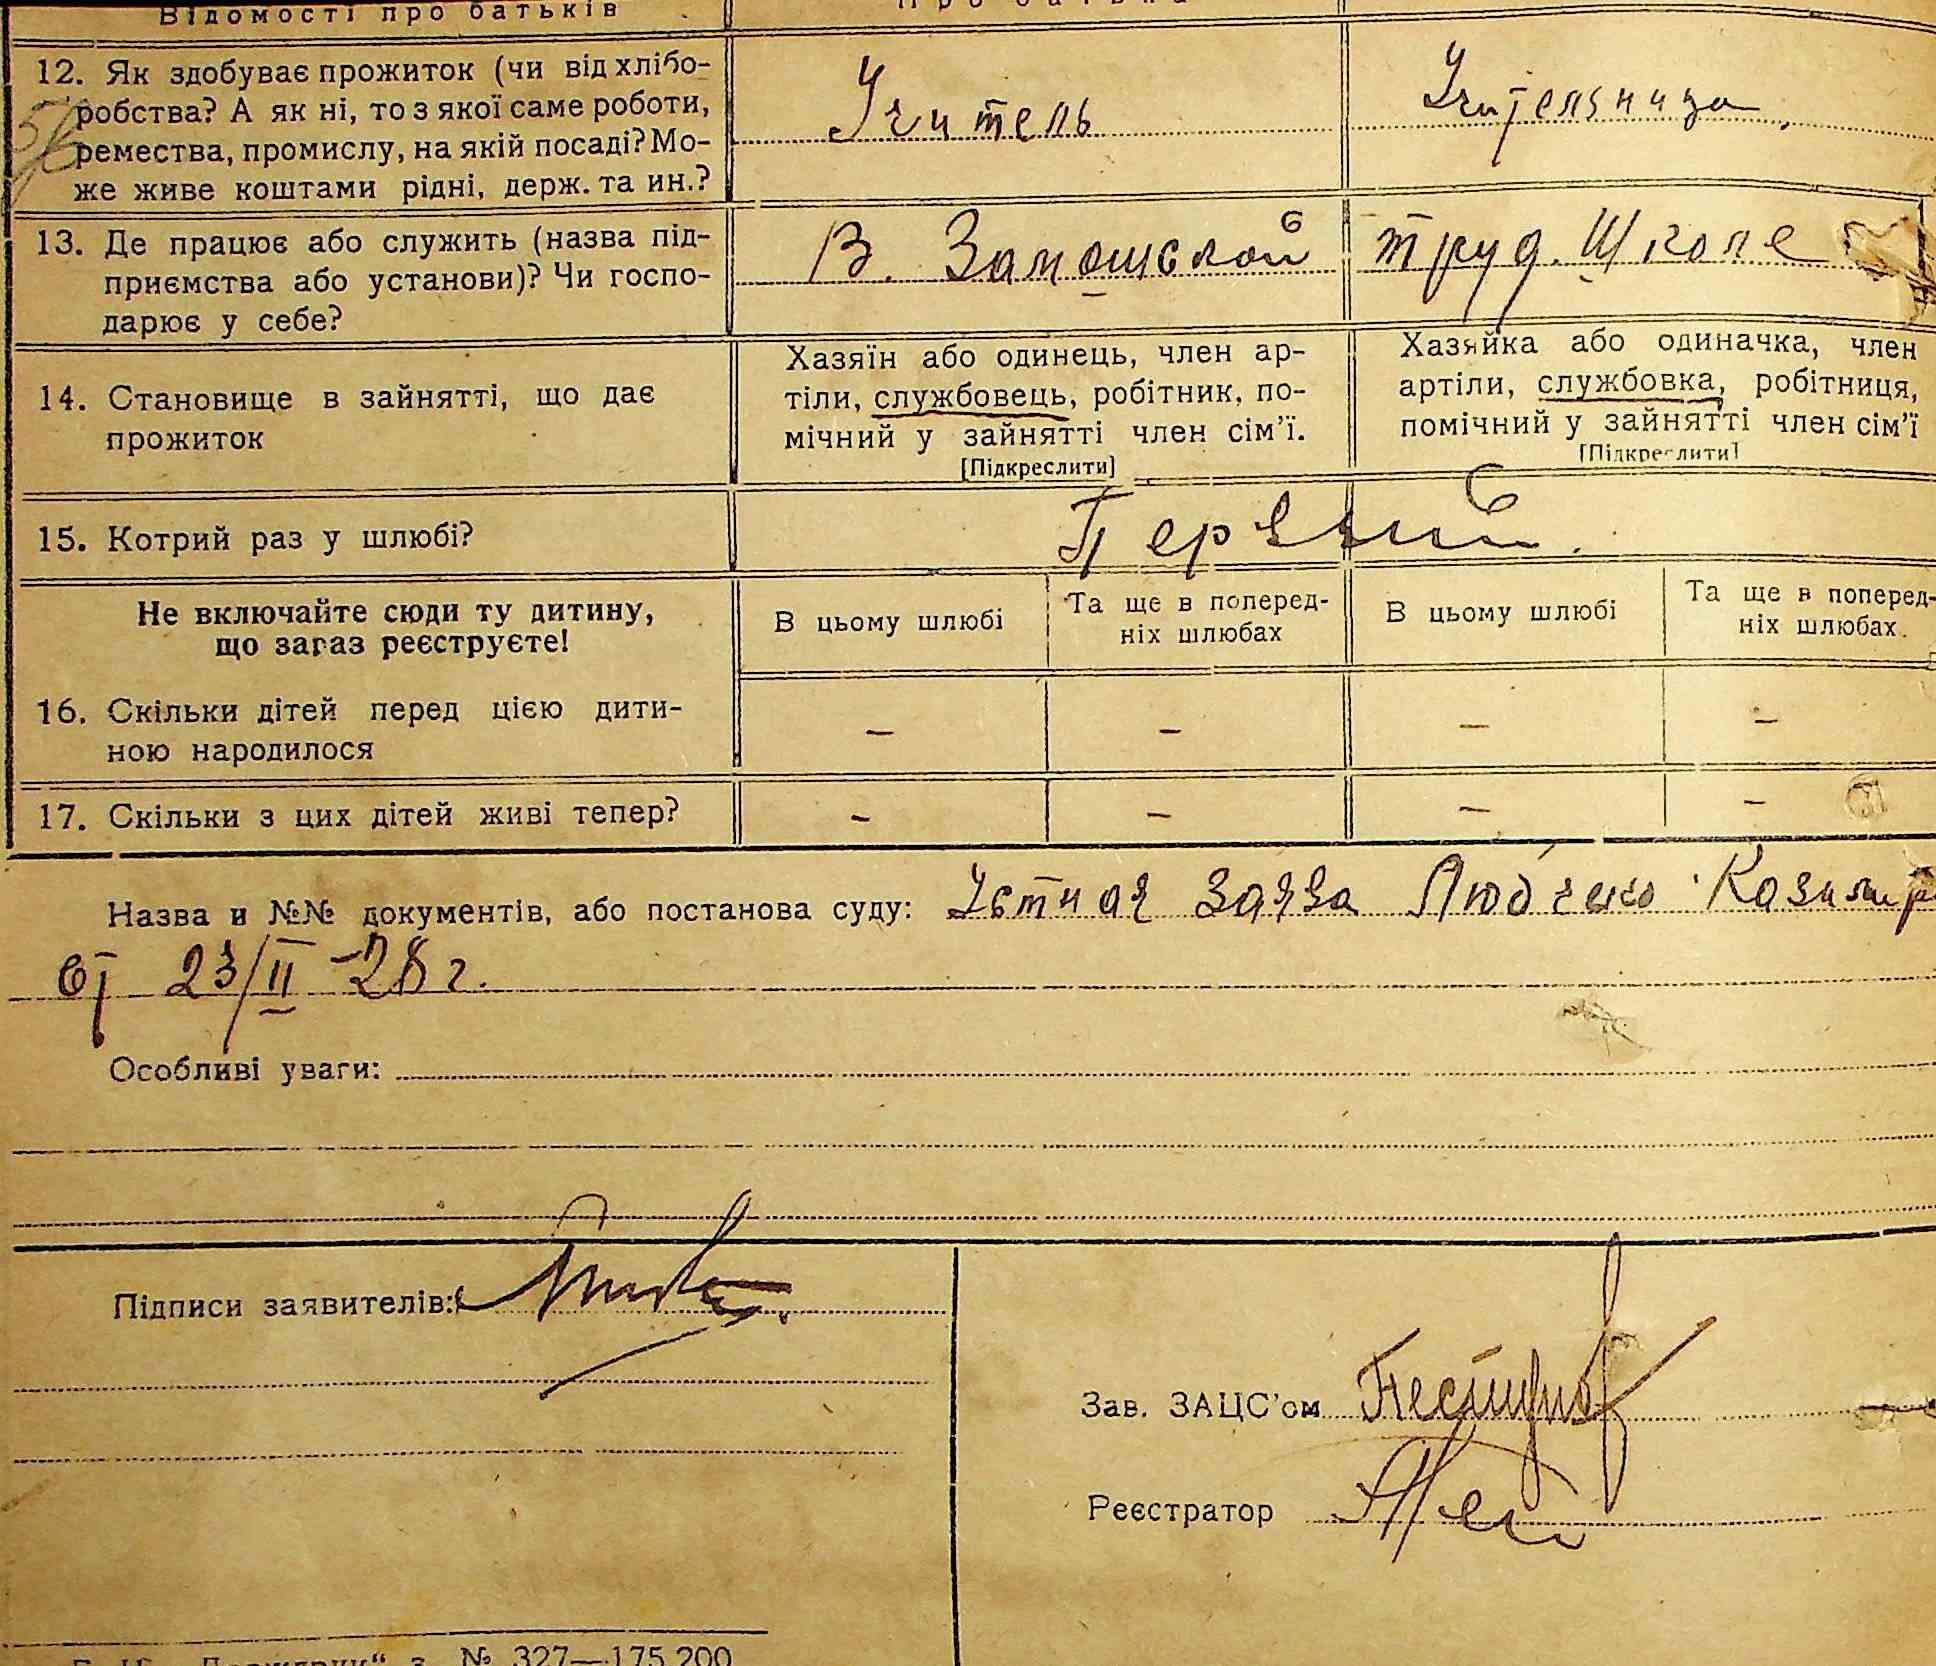 Відомості про батьків
12. Як здобуває прожиток (чи від хлібо-
робства? А як ні, то з якої саме роботи,
ремества, промислу, на якій посаді? Мо-
же живе коштами рідні, держ. та ин.?
Учитель
Учительница
13. Де працює або служить (назва під-
приємства або установи)? Чи госпо-
дарює у себе?
В. Замошской труд. Школе
14. Становище в зайнятті, що дає
прожиток
Хазяїн або одинець, член ар-
тіли, службовець, робітник, по-
мічний у зайнятті член сім'ї.
[Підкреслити]
Хазяйка або одиначка, член
артіли, службовка, робітниця,
помічний у зайнятті член сім'ї
[Підкреслити]
15. Котрий раз у шлюбі?
Первый.
Не включайте сюди ту дитину,
що зараз реєструєте!
В цьому шлюбі
Та ще в поперед-
ніх шлюбах
В цьому шлюбі
Та ще в поперед-
ніх шлюбах.
16. Скільки дітей перед цією дити-
ною народилося
– – – –
17. Скільки з цих дітей живі тепер?
– – – –
Назва и №№ документів, або постанова суду: Устная заява Любченко Казимир
от 23/II -28 г.
Особливі уваги:
Підписи заявителів:
Зав. ЗАЦС'ом
Реєстратор
№ 327—175.200